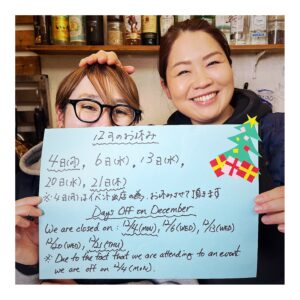 12月のお休み
4日(月), 6日(水), 13日(水),
20日(水), 21日(木)
※4日(月)はイベント出店の為、お休みさせて頂きます
Days Off on December
We are closed on: 12/4(MON), 12/6(WED), 12/13(WED)
12/20(WED), 12/21(THU)
※ Due to the fact that we are attending to an event
we are off on 12/4(MON).